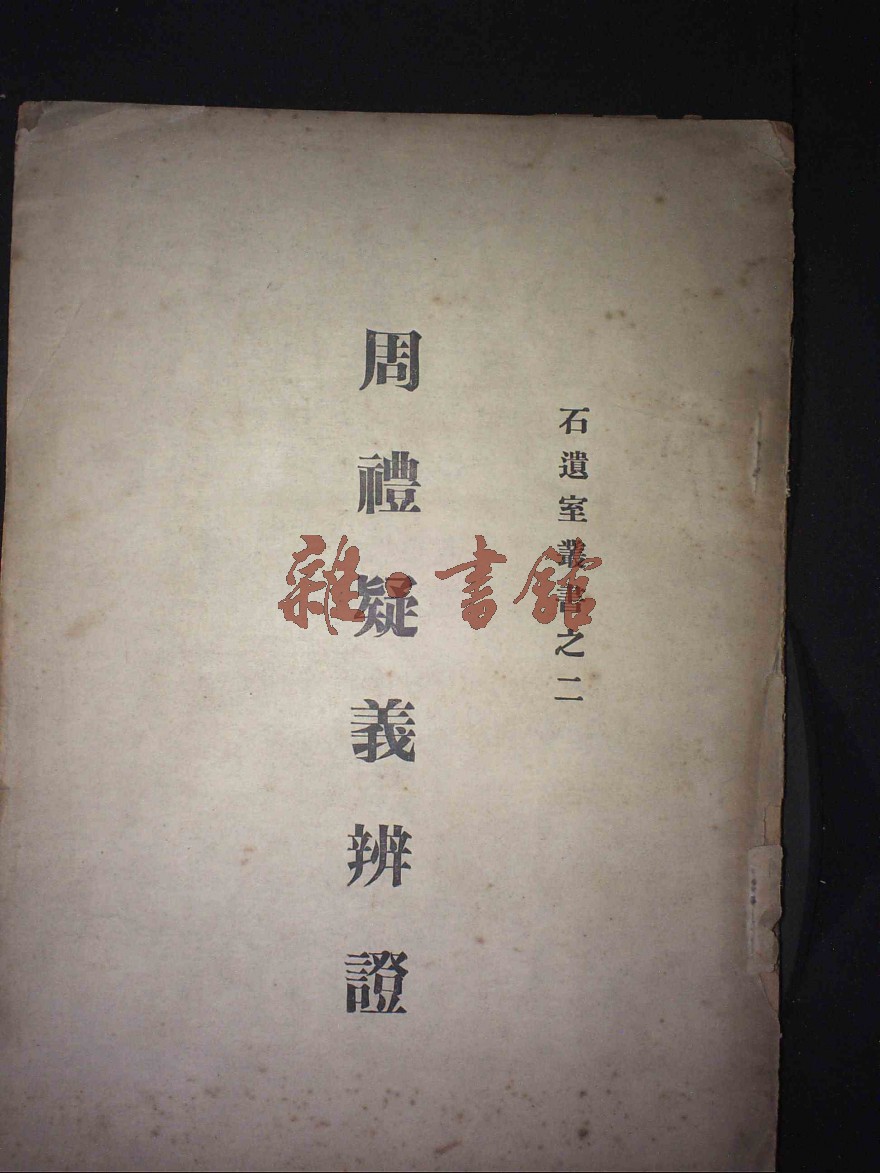 石遺室叢書之二
周禮疑義辨證
雜·書館